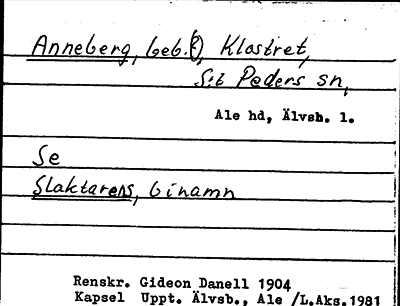 Anneberg, beb.(?), Klostret,
S:t Peders sn,
Ale hd, Älvsb. l.
Se
Slaktarens, binamn
Renskr. Gideon Danell 1904
Kapsel Uppt. Älvsb., Ale /L.Aks.1981